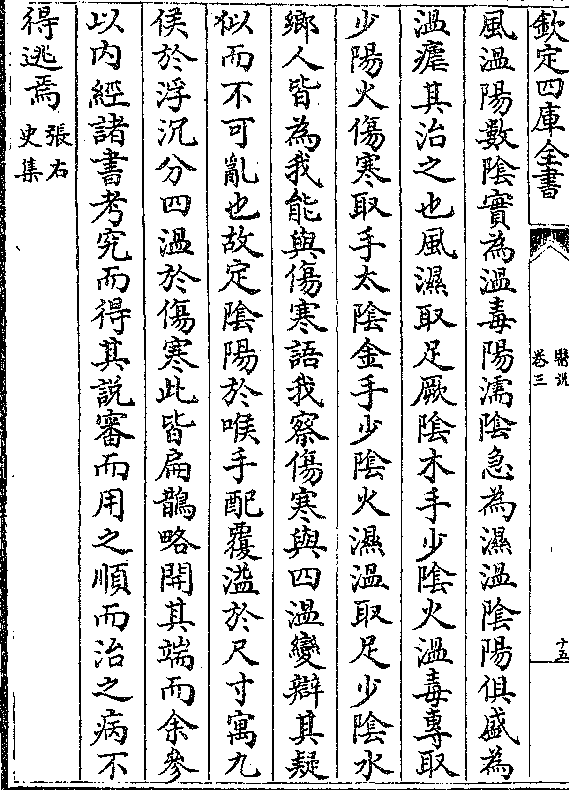 欽定四庫全書
醫説
卷三
十五
風溫陽數隂實為溫毒陽濡隂急為濕溫隂陽俱盛為
溫瘧其治之也風濕取足厥隂木手少隂火溫毒專取
少陽火傷寒取手太隂金手少隂火濕溫取足少隂水
鄉人皆為我能與傷寒語我察傷寒與四溫變辯其疑
似而不可亂也故定隂陽於喉手配覆溢於尺寸寓九
侯於浮沉分四溫於傷寒此皆扁鵲略開其端而余參
以内經諸書考究而得其説審而用之順而治之病不
得逃焉張右
史集